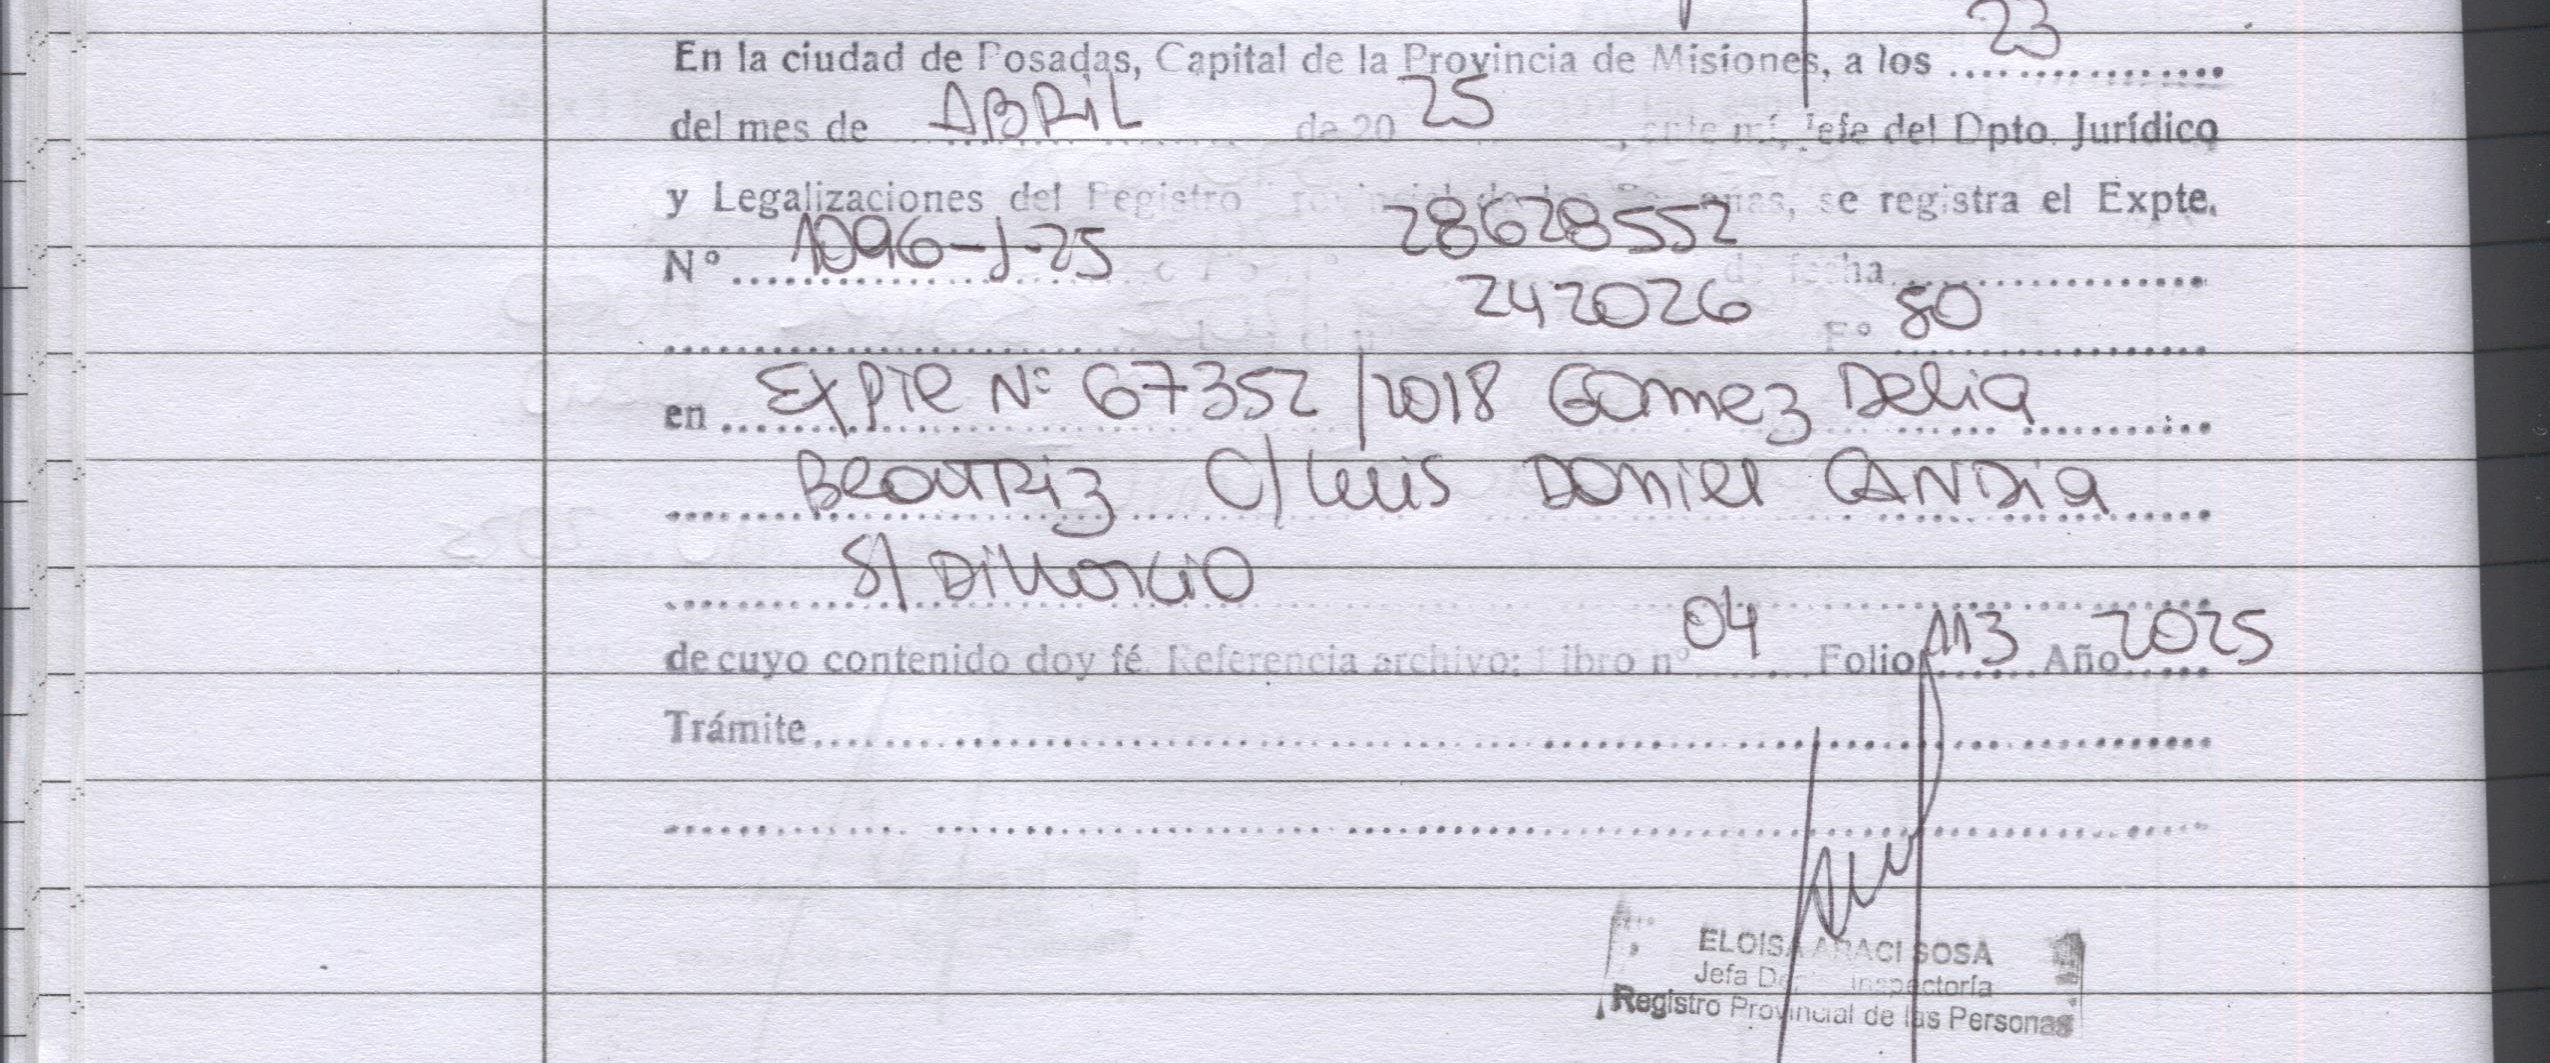 En la ciudad de Posadas, Capital de la Provincia de Misiones, a los 23
del mes de ABRIL de 20 25, ante mí, Jefe del Dpto. Jurídico
y Legalizaciones del Registro Provincial de las Personas, se registra el Expte.
28628552
N° 1096-J-25 de fecha
242026 F° 80
en EXPTE N° 67352/2018 GOMEZ DELIA
BEATRIZ C/ LUIS DANIEL CANDIA
S/ DIVORCIO
de cuyo contenido doy fé. Referencia archivo: Libro n° 04 Folio 113 Año 2025
Trámite
ELOISA ARACI SOSA
Jefa Inspectoría
Registro Provincial de las Personas